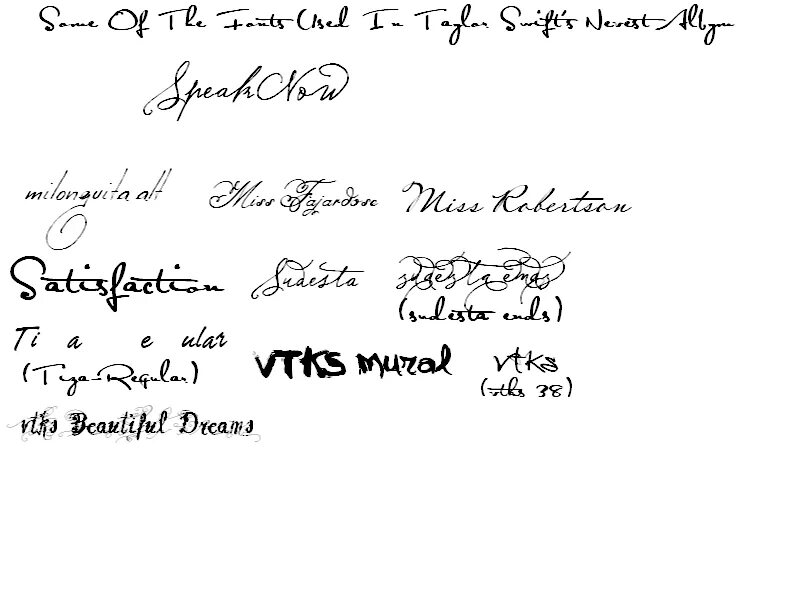 Some Of The Fonts Used In Taylor Swift's Newest Album
Speak Now
milonguita alt Miss Fajardose Miss Robertson
Satisfaction Sudesta sudesta ends
(sudesta ends)
Ti a e ular
(Tiza-Regular)
vtks mural vtks
(vtks 38)
vtks Beautiful Dreams